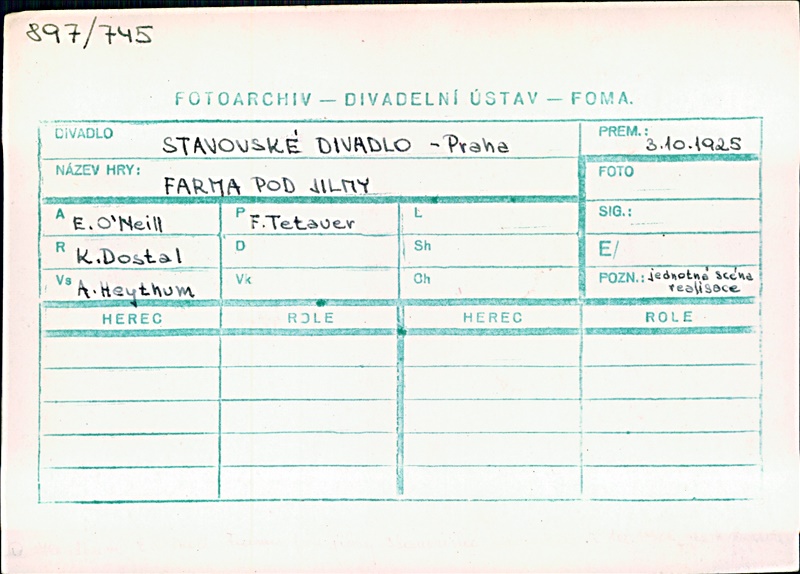 897/745
FOTOARCHIV — DIVADELNÍ ÚSTAV — FOMA.
DIVADLO STAVOVSKÉ DIVADLO - Praha
PREM.: 3.10.1925
NÁZEV HRY: FARMA POD JILMY
FOTO
A E. O'Neill P F. Tetauer L
SIG.:
R K. Dostal D Sh
E/
Vs A. Heythum Vk Ch
POZN.: jednotná scéna
realisace
HEREC ROLE HEREC ROLE